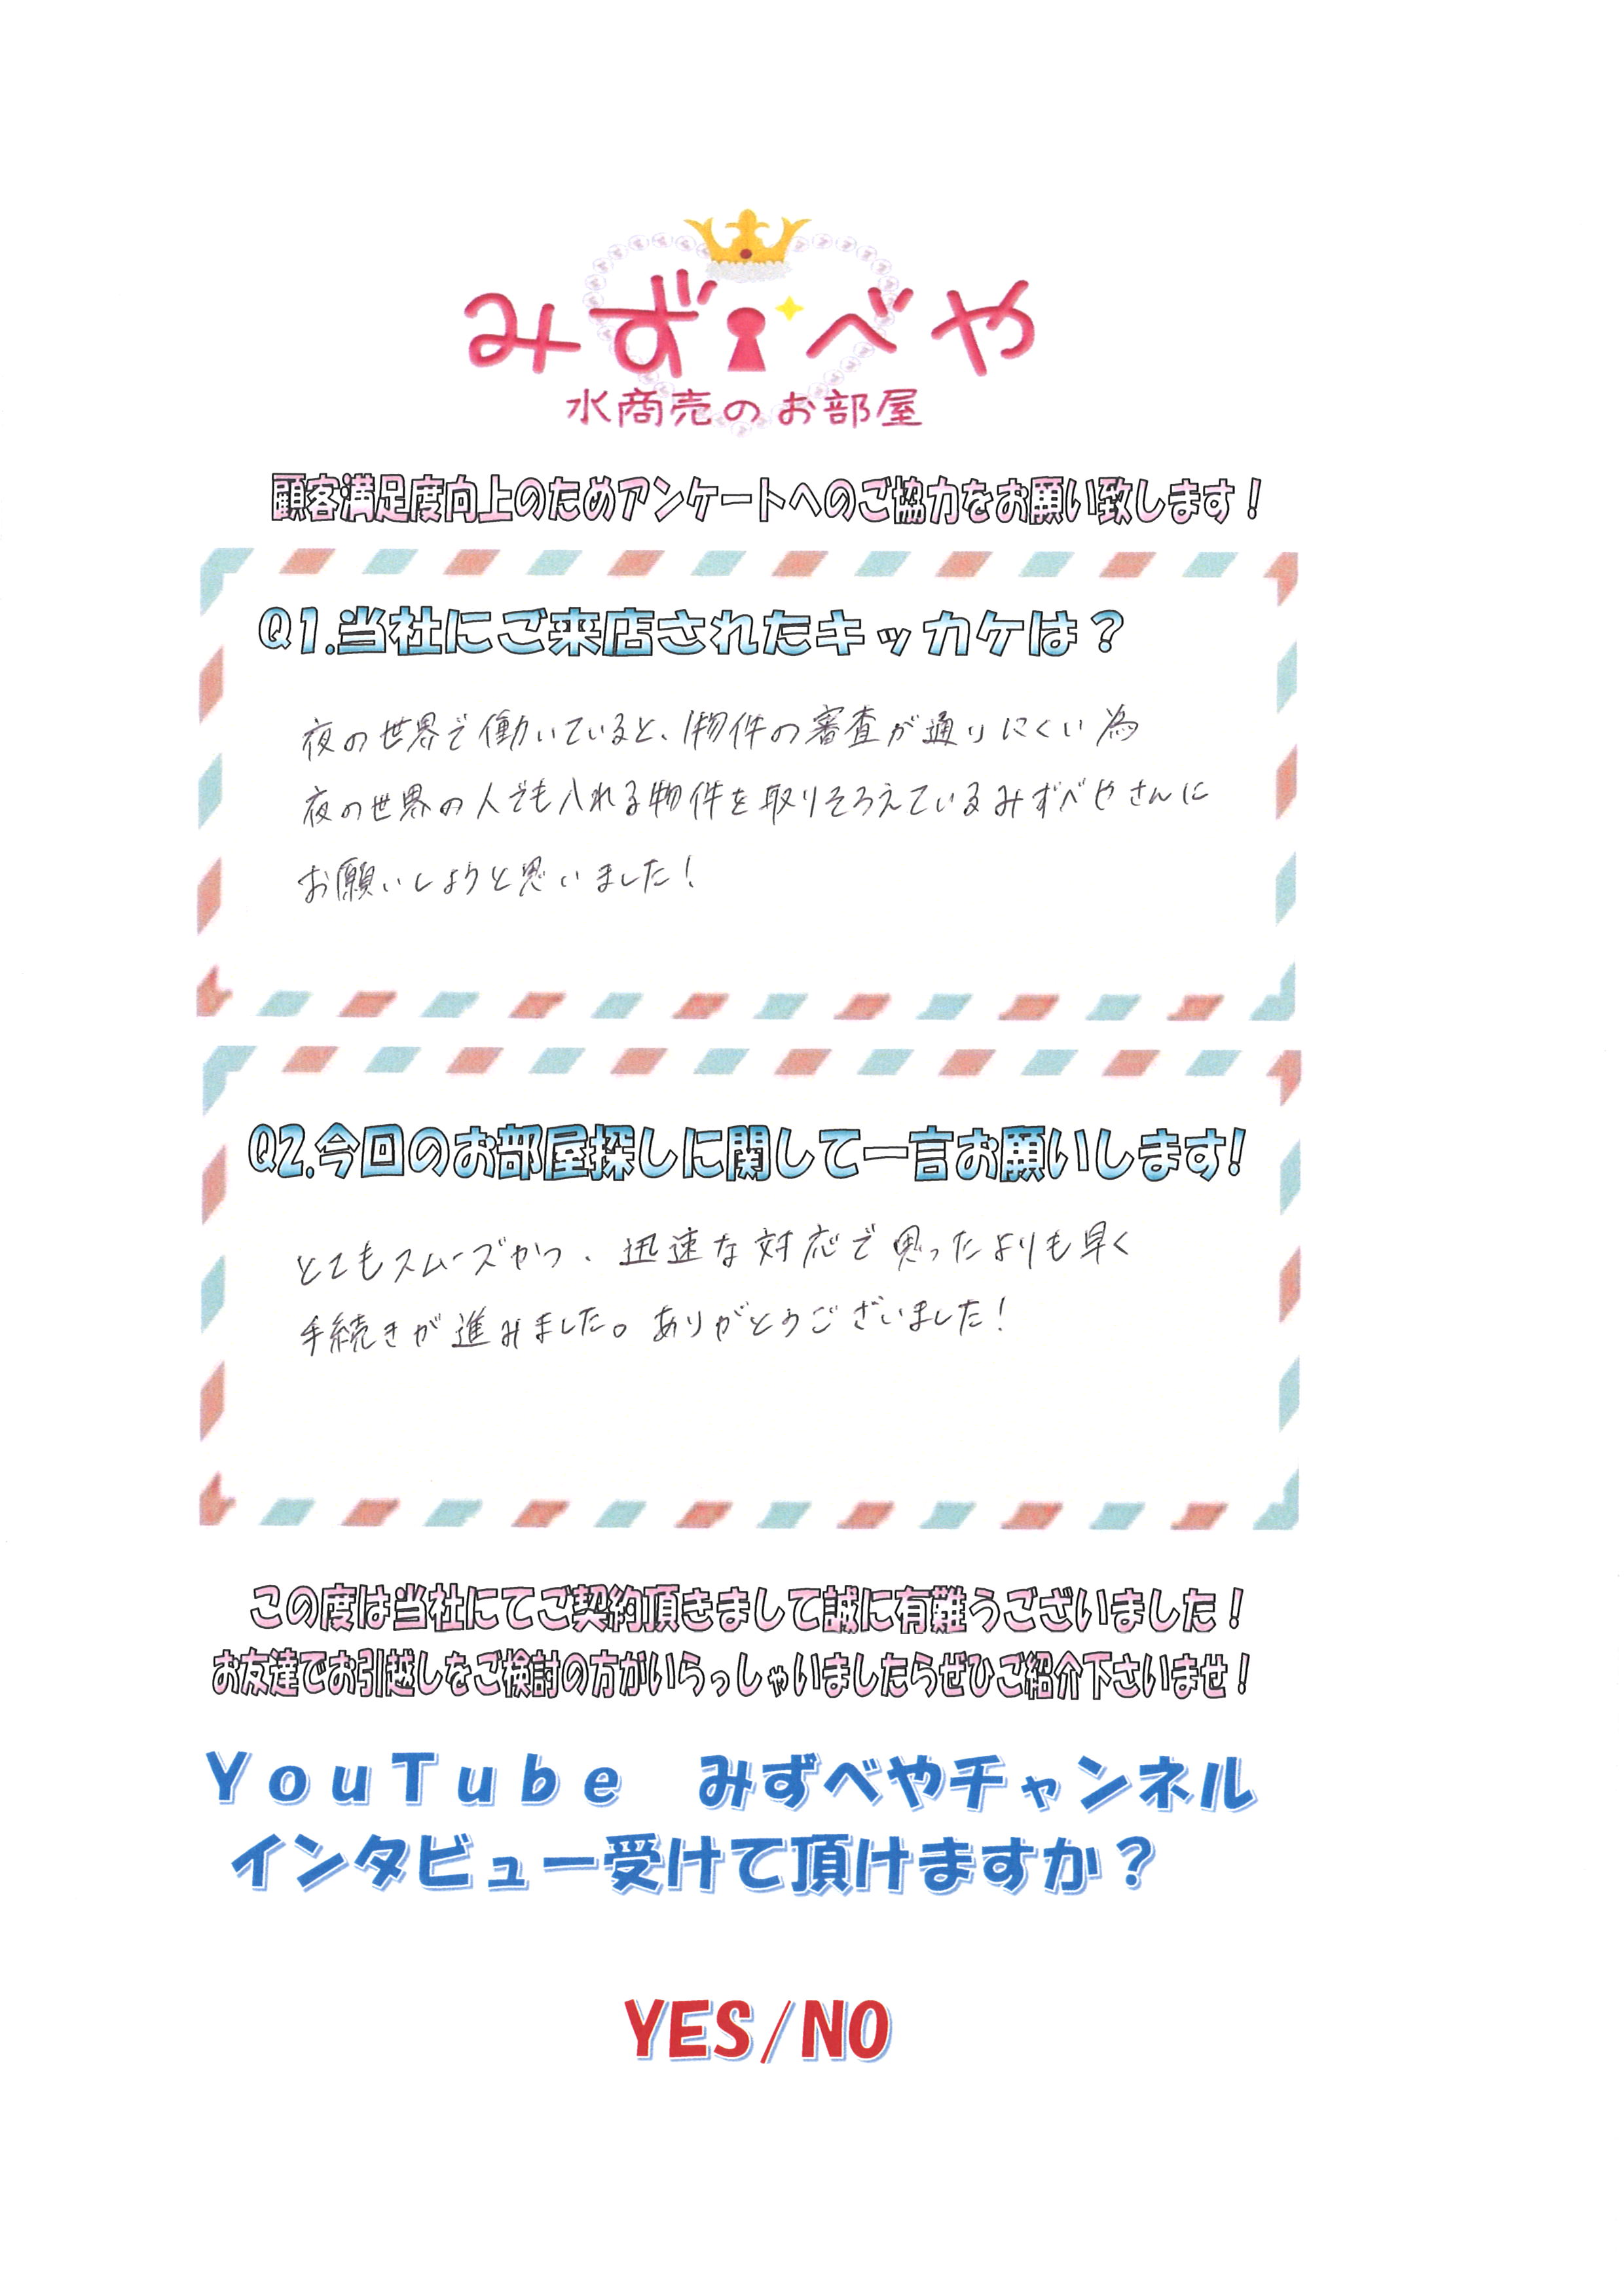 みずべや
水商売のお部屋
顧客満足度向上のためアンケートへのご協力をお願い致します！
Q1.当社にご来店されたキッカケは？
夜の世界で働いていると、物件の審査が通りにくい為
夜の世界の人でも入れる物件を取りそろえているみずべやさんに
お願いしようと思いました！
Q2.今回のお部屋探しに関して一言お願いします！
とてもスムーズかつ、迅速な対応で思ったよりも早く
手続きが進みました。ありがとうございました！
この度は当社にてご契約頂きまして誠に有難うございました！
お友達でお引越しをご検討の方がいらっしゃいましたらぜひご紹介下さいませ！
YouTube みずべやチャンネル
インタビュー受けて頂けますか？
YES/NO